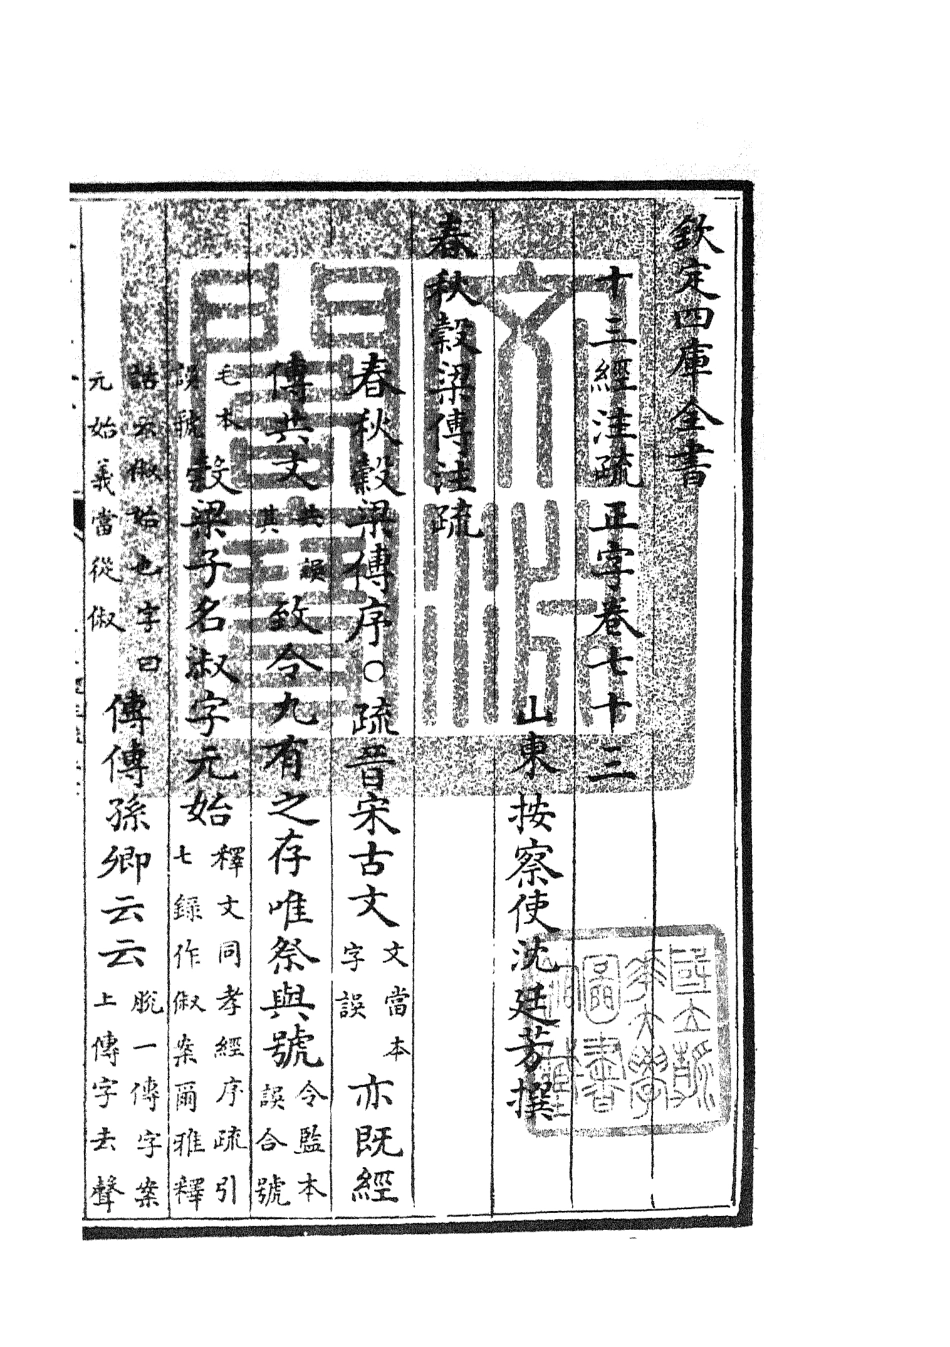 欽定四庫全書
十三經注疏正字卷七十三
山東按察使沈廷芳撰
春秋穀梁傳注疏
春秋穀梁傳序○疏晉宋古文文當本字誤亦既經
傳共文共誤其致令九有之存唯祭與號令監本誤合號
毛本誤號穀梁子名淑字元始釋文同孝經序疏引七錄作俶案爾雅釋
詁云俶始也字曰元始義當從俶傳傳孫卿云云脫一傳字案上傳字去聲
文淵閣寶